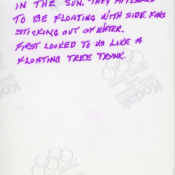 IN THE SUN. THEY APPEARED
TO BE FLOATING WITH SIDE FINS
STICKING OUT OF WATER.
FIRST LOOKED TO US LIKE A
FLOATING TREE TRUNK.
Kodak